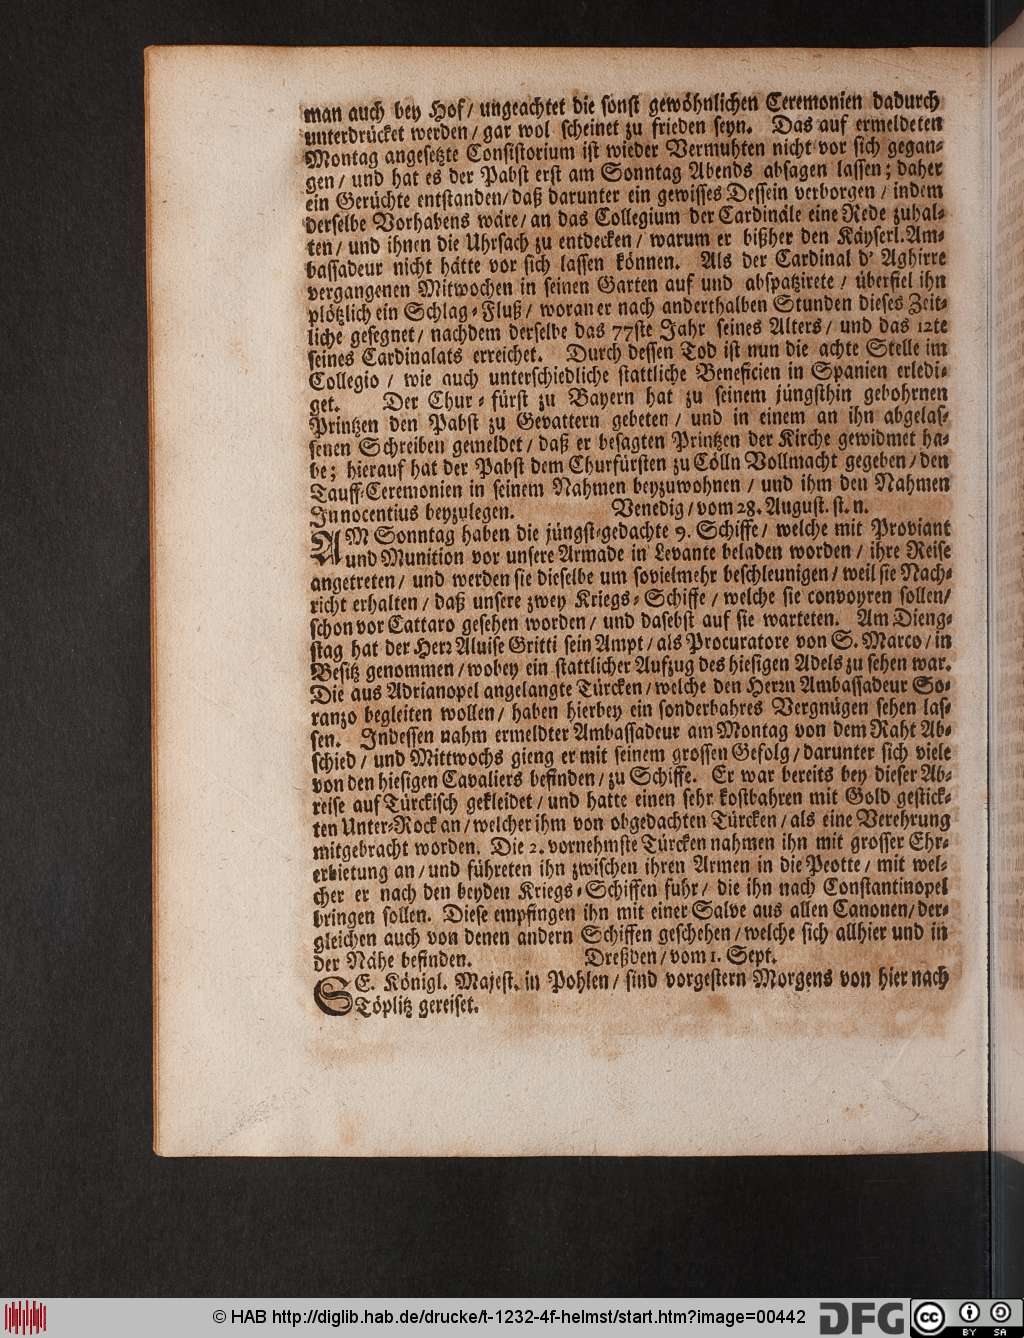 man auch bey Hof / ungeachtet die sonst gewöhnlichen Ceremonien dadurch
unterdrücket werden / gar wol scheinet zu frieden seyn. Das auf ermeldeten
Montag angesetzte Consistorium ist wieder Vermuhten nicht vor sich gegan-
gen / und hat es der Pabst erst am Sonntag Abends absagen lassen; daher
ein Gerüchte entstanden / daß darunter ein gewisses Dessein verborgen / indem
derselbe Vorhabens wäre / an das Collegium der Cardinäle eine Rede zuhal-
ten / und ihnen die Uhrsach zu entdecken / warum er bißher den Käyserl. Am-
bassadeur nicht hätte vor sich lassen können. Als der Cardinal d' Aghirre
vergangenen Mitwochen in seinen Garten auf und abspatzirete / überfiel ihn
plötzlich ein Schlag-Fluß / woran er nach anderthalben Stunden dieses Zeit-
liche gesegnet / nachdem derselbe das 77ste Jahr seines Alters / und das 12te
seines Cardinalats erreichet. Durch dessen Tod ist nun die achte Stelle im
Collegio / wie auch unterschiedliche stattliche Beneficien in Spanien erledi-
get. Der Chur-fürst zu Bayern hat zu seinem jüngsthin gebohrnen
Printzen den Pabst zu Gevattern gebeten / und in einem an ihn abgelas-
senen Schreiben gemeldet / daß er besagten Printzen der Kirche gewidmet ha-
be; hierauf hat der Pabst dem Churfürsten zu Cölln Vollmacht gegeben / den
Tauff-Ceremonien in seinem Nahmen beyzuwohnen / und ihm den Nahmen
Innocentius beyzulegen. Venedig / vom 28. August. st. n.
AM Sonntag haben die jüngst-gedachte 9. Schiffe / welche mit Proviant
und Munition vor unsere Armade in Levante beladen worden / ihre Reise
angetreten / und werden sie dieselbe um sovielmehr beschleunigen / weil sie Nach-
richt erhalten / daß unsere zwey Kriegs-Schiffe / welche sie convoyren sollen /
schon vor Cattaro gesehen worden / und dasebst auf sie warteten. Am Dieng-
stag hat der Herr Aluise Gritti sein Ampt / als Procuratore von S. Marco / in
Besitz genommen / wobey ein stattlicher Aufzug des hiesigen Adels zu sehen war.
Die aus Adrianopel angelangte Türcken / welche den Herrn Ambassadeur So-
ranzo begleiten wollen / haben hierbey ein sonderbahres Vergnügen sehen las-
sen. Indessen nahm ermeldter Ambassadeur am Montag von dem Raht Ab-
schied / und Mittwochs gieng er mit seinem grossen Gefolg / darunter sich viele
von den hiesigen Cavaliers befinden / zu Schiffe. Er war bereits bey dieser Ab-
reise auf Türckisch gekleidet / und hatte einen sehr kostbahren mit Gold gestick-
ten Unter-Rock an / welcher ihm von obgedachten Türcken / als eine Verehrung
mitgebracht worden. Die 2. vornehmste Türcken nahmen ihn mit grosser Ehr-
erbietung an / und führeten ihn zwischen ihren Armen in die Peotte / mit wel-
cher er nach den beyden Kriegs-Schiffen fuhr / die ihn nach Constantinopel
bringen sollen. Diese empfingen ihn mit einer Salve aus allen Canonen / der-
gleichen auch von denen andern Schiffen geschehen / welche sich allhier und in
der Nähe befinden. Dreßden / vom 1. Sept.
SE. Königl. Majest. in Pohlen / sind vorgestern Morgens von hier nach
Töplitz gereiset.
© HAB http://diglib.hab.de/drucke/t-1232-4f-helmst/start.htm?image=00442
DFG
cc BY SA